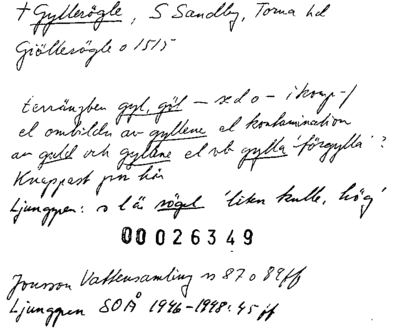 † Gyllerögle, S Sandby, Torna hd
Giöllerögle o 1515
terrängben gyl, göl — se d o — i komp-/
el ombildn av gyllene el kontamination
av guld och gyllene el vb gylla 'förgylla'?
Knappast pn här
Ljunggren: s lä rögel 'liten kulle, hög'
00026349
Jonsson Vattensamling ss 87 o 89ff
Ljunggren SOÅ 1946-1948: 45 ff